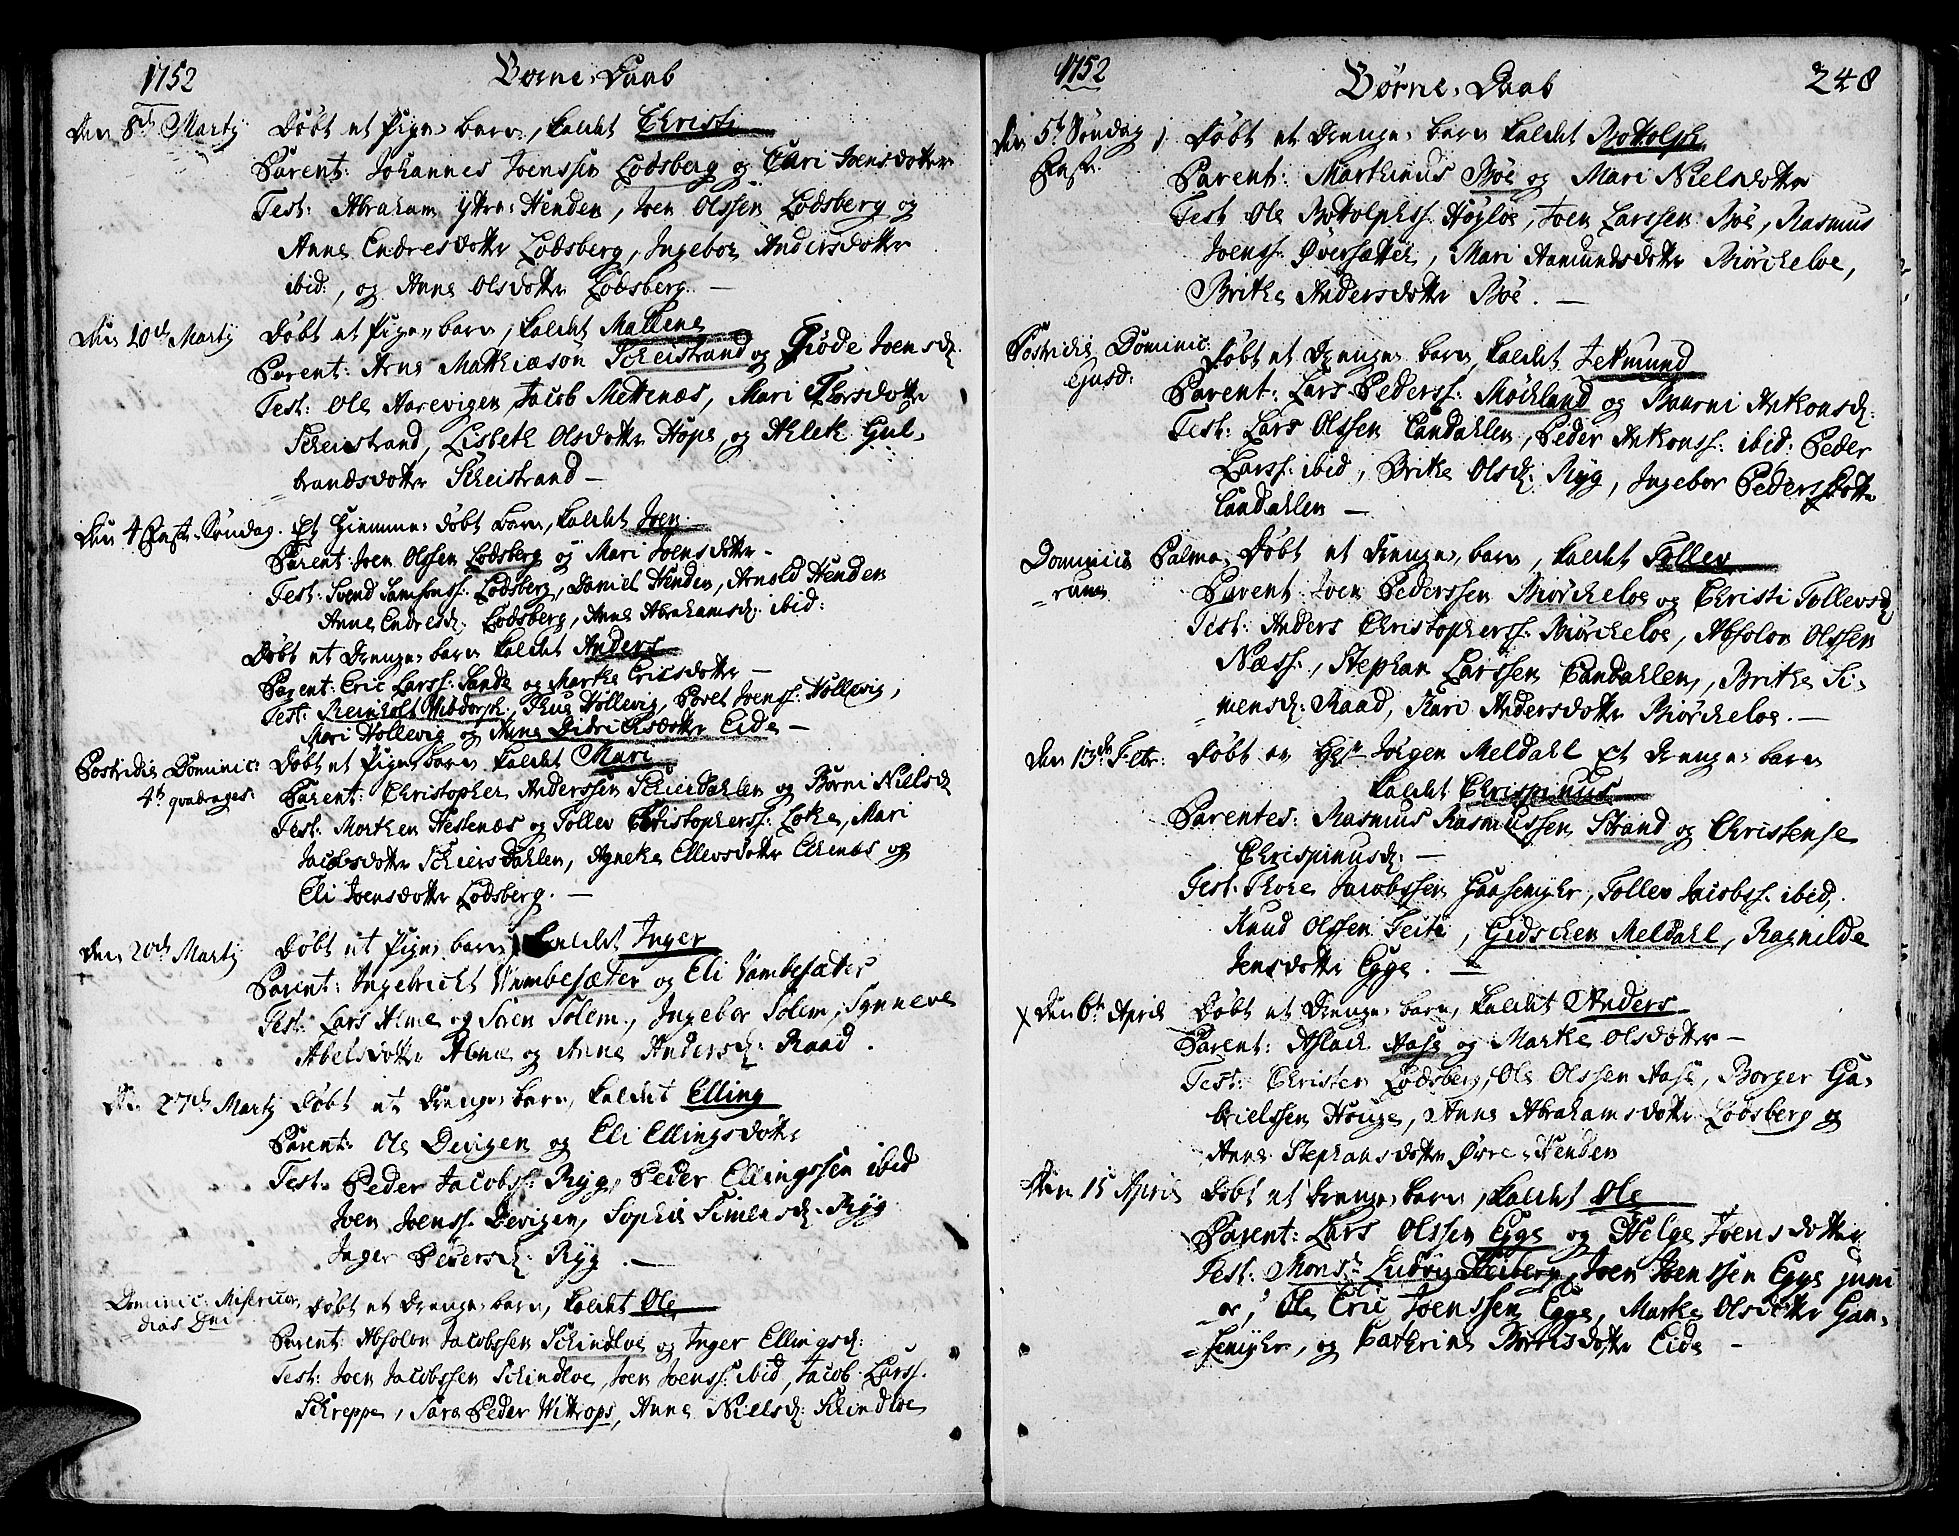 1752 Børne-Daab
Den 8de Martÿ Døbt et Pige-barn, kaldet Christi
Parent: Johannes Joenssen Lodsberg og Kari Joensdotter
Test: Abraham Ytre-Henden, Joen Olssen Lodsberg og
Anne Endresdotter Lodsberg, Ingebor Andersdotter
ibid:, og Anne Olsdotter Lodsberg. —
Den 10de Martÿ Døbt et Pige-barn, kaldet Mallene
Parent: Arne Matthiason Scheistrand og Giøde Joensd:
Test: Ole Aarevigen, Jacob Mettenæs, Mari Olsdotter
Scheistrand, Lisbeth Olsdotter Hope, og Athlet Gul-
brandsdotter Scheistrand —
Den 4 Faste-Søndag. Et Hiemme-døbt Barn, kaldet Joen
Parent: Joen Olssen Lodsberg og Mari Joensdotter
Test: Svend Samsonss: Lodsberg, Daniel Henden, Arnold Henden
Anne Endresd: Lodsberg, Anne Abrahamsd: ibid:
Døbt et Drenge-barn kaldet Anders
Parent: Eric Larss: Sande og Marthe Ericsdotter —
Test: Reinholt Wibdorph, Hollevig, Povel Joenss: Hollevig,
Mari Hollevig og Anne Didrichsdotter Eide —
Postridie Dominic: 4te quadrages: Døbt et Pige-barn kaldet Mari
Parent: Christopher Anderssen Scheidahlen og Børni Nielsd
Test: Morthen Hestenæs og Tollev Christopherss: Lothe, Mari
Jacobsdotter Scheirsdahlen, Agnethe Ellevsdotter Eknæs og
Eli Joensdotter Lodsberg. —
Den 20de Martÿ Døbt et Pige-barn, kaldet Inger
Parent: Ingebricht Vambesæter og Eli Vambesæter
Test: Lars Alme og Søren Solem, Ingebor Solem, Synneve
Abelsdotter Alme og Anne Andersd: Raad.
Den 27de Martÿ Døbt et Drenge-barn, kaldet Elling
Parent: Ole Devigen og Eli Ellingsdotter
Test: Peder Jacobss: Ryg, Peder Ellingssen ibid
Joen Joenss: Devigen, Sophie Simensd: Ryg
Inger Pedersd: Ryg. —
Dominic: Misericor-
dias Dni Døbt et Drenge-barn, kaldet Ole
Parent: Absolon Jacobssen Schindloe og Inger Ellingsd:
Test: Joen Jacobssen Schindloe, Joen Joenss: ibid, Jacob Larss:
Schreppe, Sara Peder Wittrops, Anne Nielsd: Schindloe
1752 Børne-Daab 248
Den 5te Søndag i
Faste Døbt et Drenge-barn kaldet Bottolph
Parent: Marthinus Bøe og Mari Nielsdotter
Test Ole Bottolphss: Høyloe, Joen Larssen Bøe, Rasmus
Joenss: Øversætter, Mari Aamundsdotter Biørcheloe,
Brithe Andersdotter Bøe. —
Postridie Dominic:
ejusd: Døbt et Drenge-barn, kaldet Jetmund
Parent: Lars Pederss: Mochland og Anthonsd:
Test: Lars Olssen Candahlen, Peder Anthonss: ibid: Peder
Larss: ibid, Brithe Olsd: Ryg, Ingebor Pedersdotter
Candahlen —
Dominica Palma-
rum Døbt et Drenge-barn, kaldet Tollev
Parent: Joen Pederssen Biørcheloe og Christi Tollevsd
Test: Anders Christopherss: Biørcheloe, Absolon Olssen
Næss:, Stephan Larssen Candahlen, Brithe Si-
mensd: Raad, Kari Andersdotter Biørcheloe. —
Den 13de Febr: Døbt av Hr Jørgen Meldahl Et Drenge-barn
kaldet Chrispinus
Parentes: Rasmus Rasmussen Strand og Christense
Chrispinusd: —
Test: Thore Jacobssen Gaasemyhr, Tollev Jacobss: ibid,
Knud Olssen Feite, Gidschen Meldahl, Ragnilde
Jensdotter Egge. —
x Den 6te April Døbt et Drenge-barn, kaldet Anders
Parent: Aslach Aase og Marthe Olsdotter —
Test: Christen Lodsberg, Ole Olssen Aase, Borger Ga-
brielssen Houge, Anne Abrahamsdotter Lodsberg og
Anne Stephansdotter Øvre-Henden
Den 15 April Døbt et Drenge-barn, kaldet Ole
Parent: Lars Olssen Egge og Helge Joensdotter
Test: Monsr Ludvig Heiberg, Joen Joenssen Egge juni-
or, Ole Eric Joenssen Egge, Marthe Olsdotter Gaa-
semyhr, og Cathrine Berthesdotter Eide —